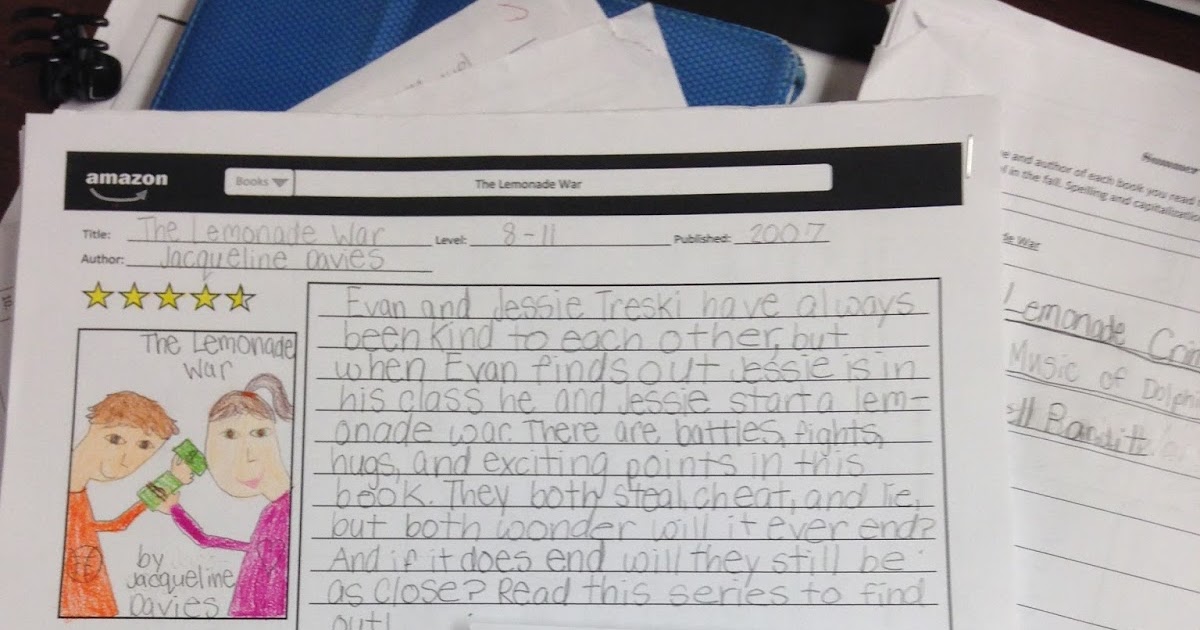 amazon
Books
The Lemonade War
Title: The Lemonade War Level: 8-11 Published: 2007
Author: Jacqueline Davies
The Lemonade
War
by
Jacqueline
Davies
Evan and Jessie Treski have always
been kind to each other, but
when Evan finds out Jessie is in
his class he and Jessie start a lem-
onade war. There are battles, fights,
hugs, and exciting points in this
book. They both steal, cheat, and lie,
but both wonder will it ever end?
And if it does end will they still be
as close? Read this series to find
out!
Summer
e and author of each book you read
in the fall. Spelling and
de War
Lemonade
Music of